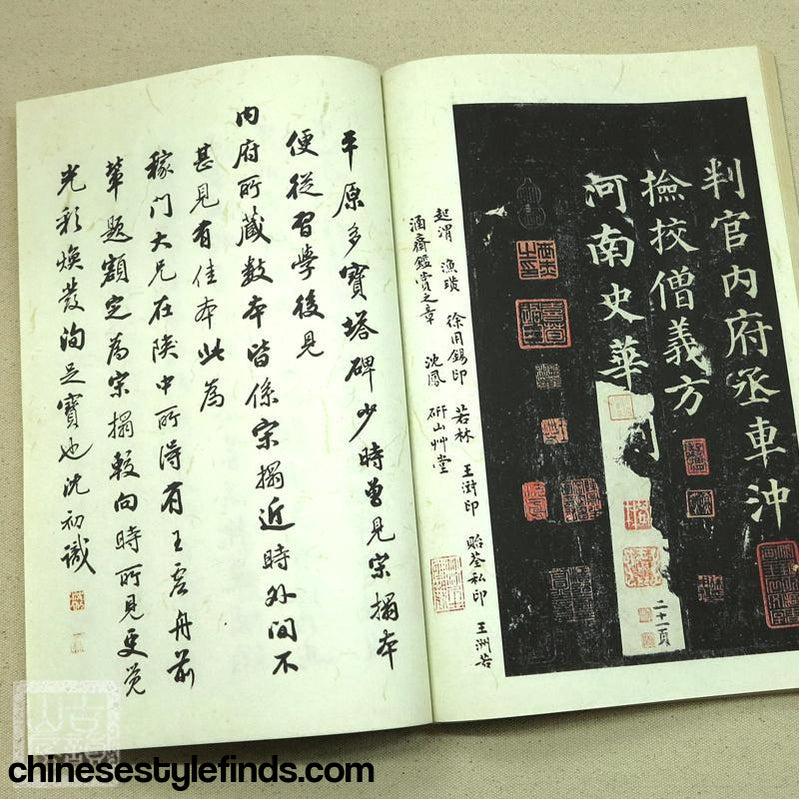 判官内府丞車沖
撿挍僧義方
河南史華刻
二十一頁
起渭 漁璜 徐用錫印 若林 王澍印 貽荃私印 王洲若
涵齋鑑賞之章 沈鳳 研山艸堂
平原多寶塔碑少時曾見宋搨本
便從習學後見
内府所藏數本皆係宋搨近時外间不
甚見有佳本此為
稼门大兄在陕中所得有王虚舟前
輩題額定為宋搨較向時所見更觉
光彩焕发洵足寶也沈初識
chinesestylefinds.com